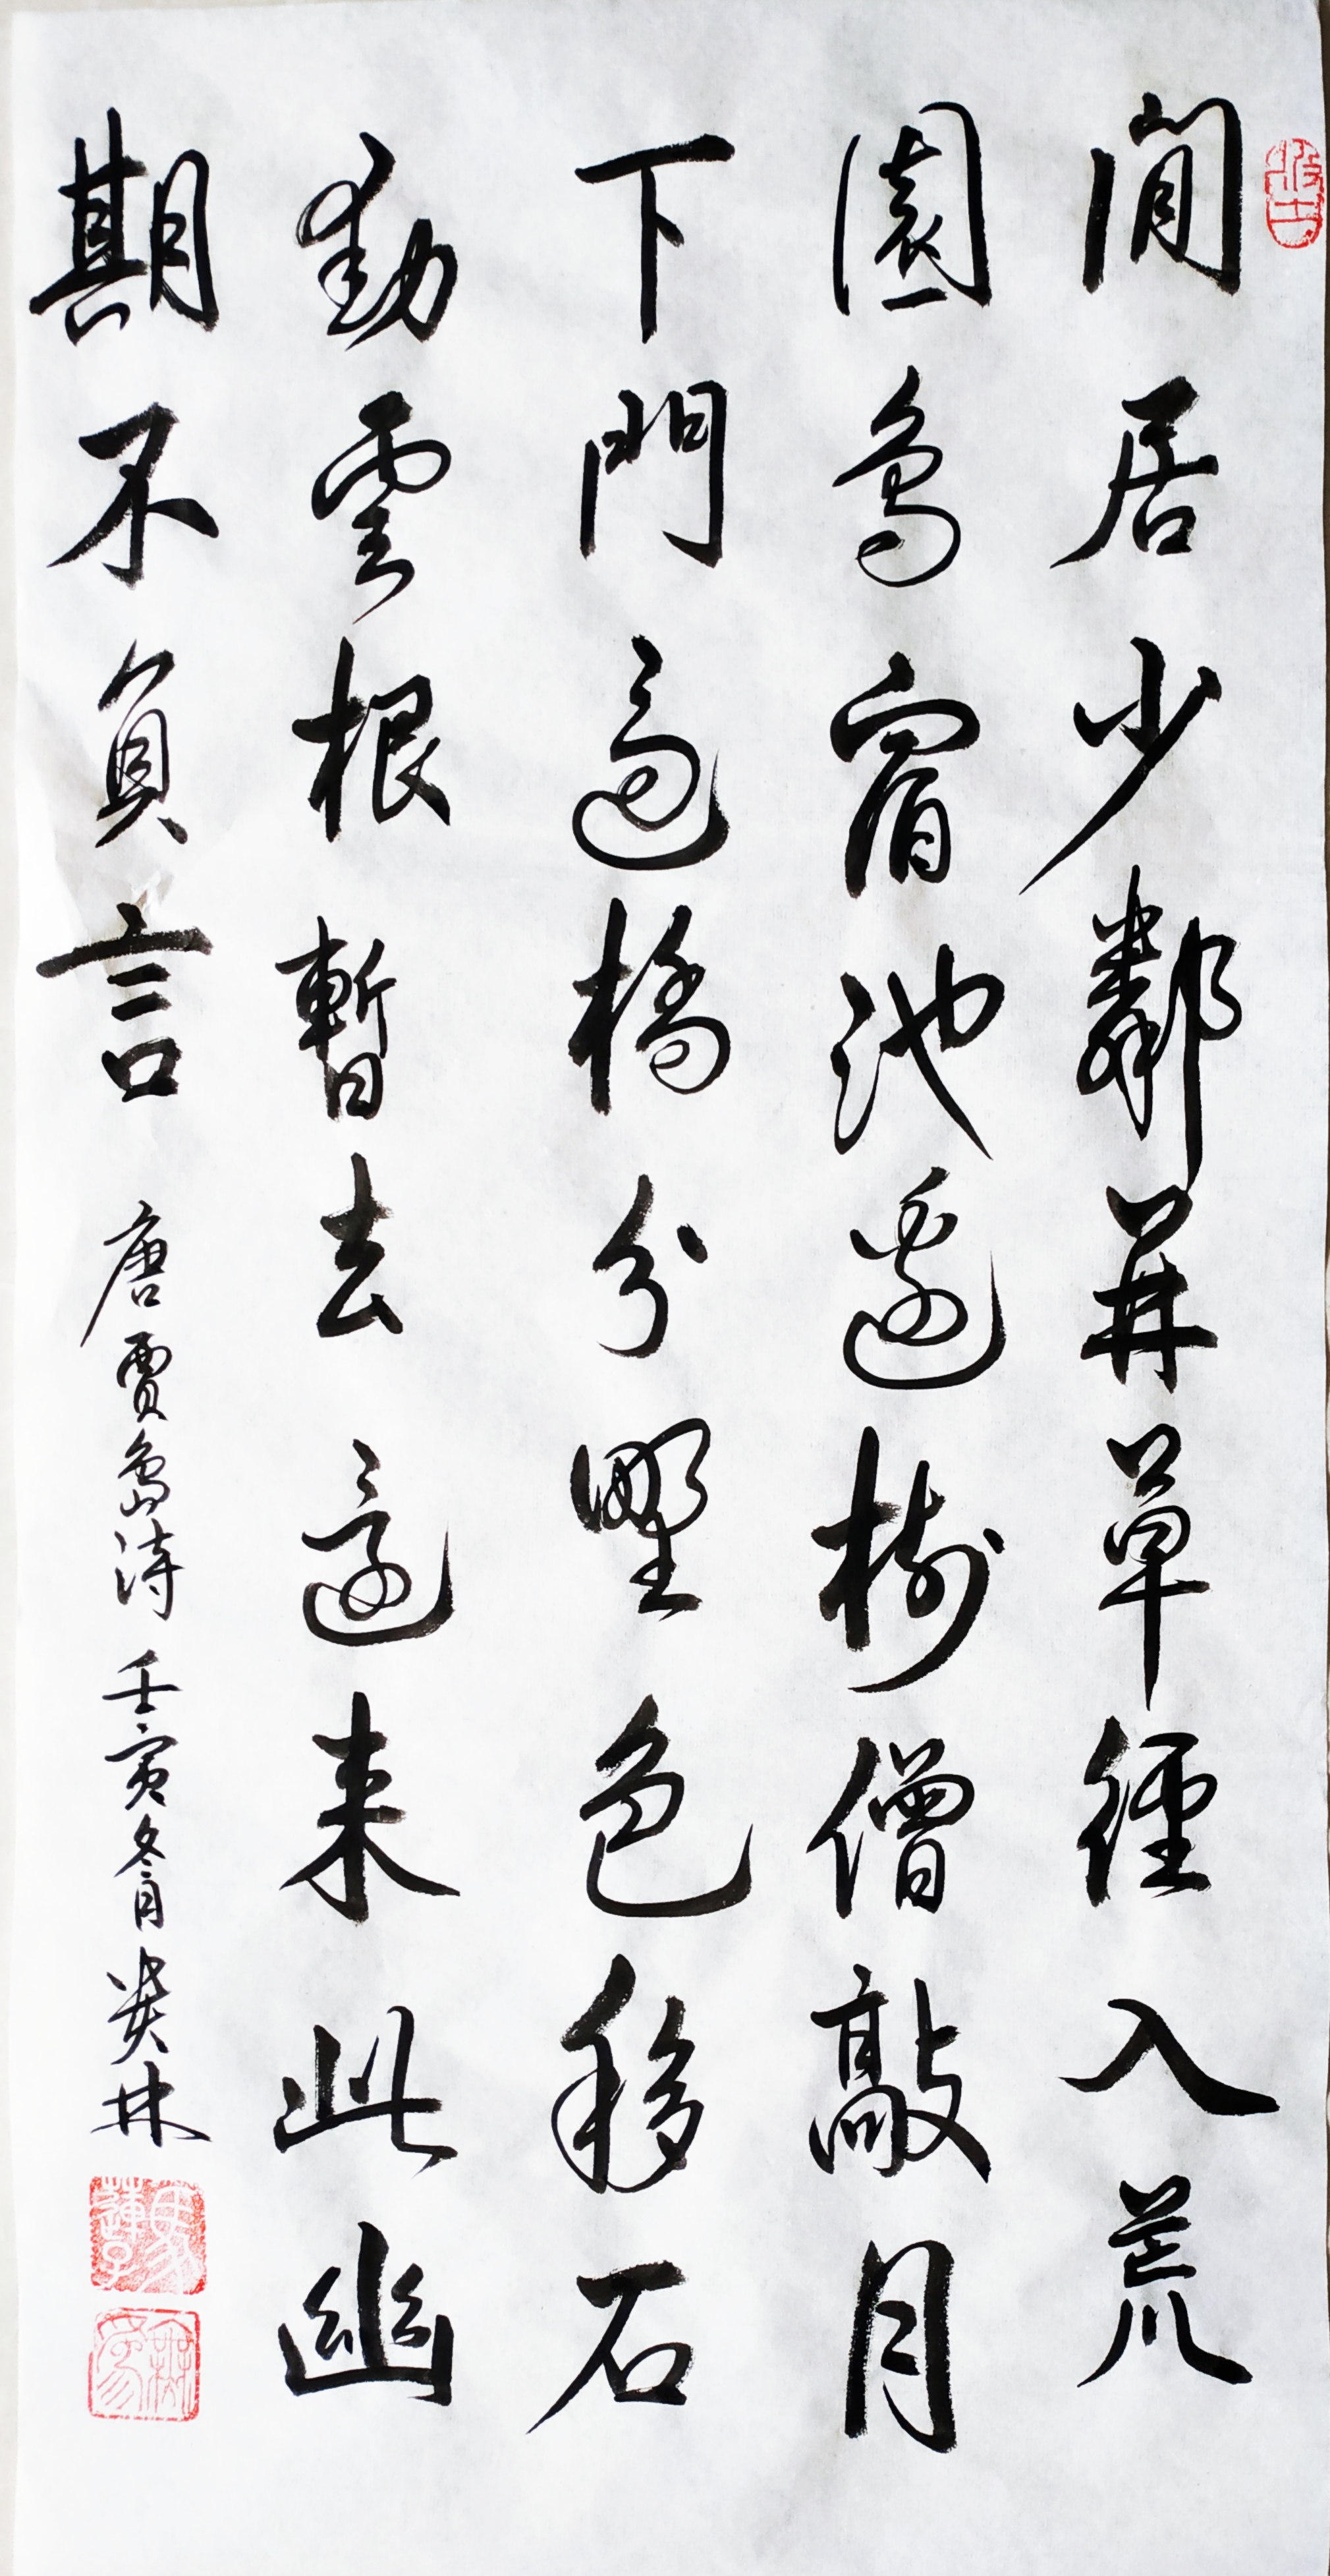 閒居少鄰并草徑入荒
園鳥宿池邊樹僧敲月
下門過橋分野色移石
動雲根暫去還来此幽
期不負言 唐賈島詩 壬寅冬月 林